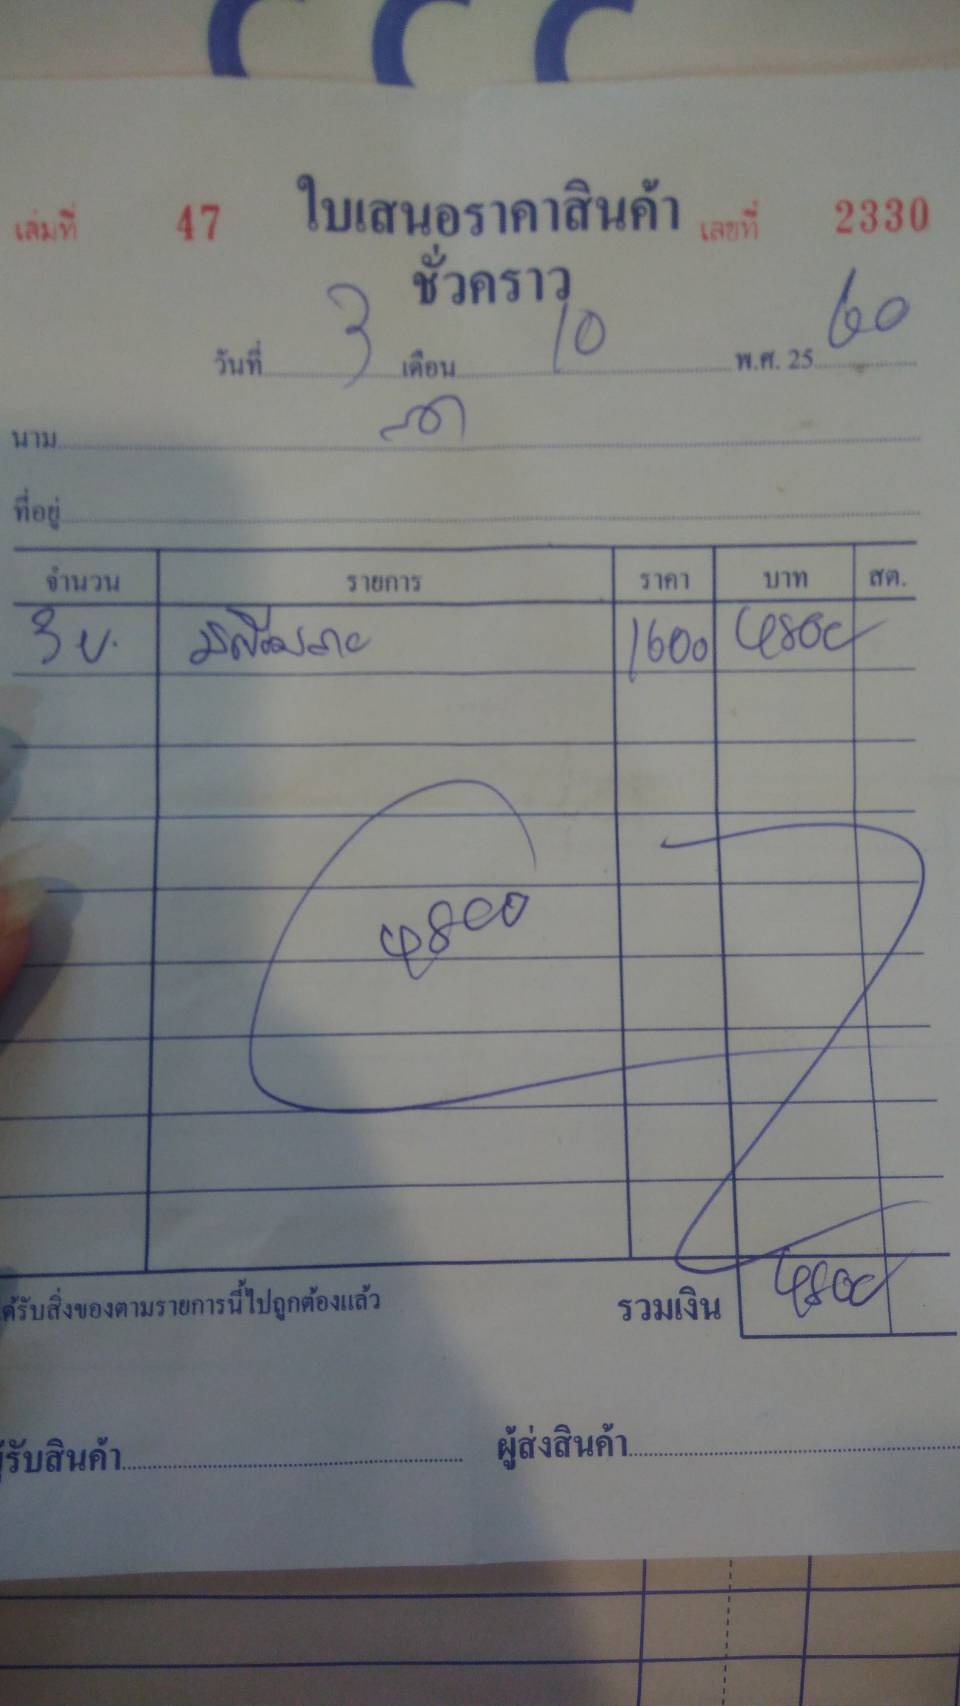 เล่มที่ 47 ใบเสนอราคาสินค้า เลขที่ 2330
ชั่วคราว
วันที่ 3 เดือน 10 พ.ศ. 25 60
นาม
ที่อยู่
จำนวน รายการ ราคา บาท สต.
3 ข. 1600 4800
4800
ด้รับสิ่งของตามรายการนี้ไปถูกต้องแล้ว รวมเงิน 4800
ผู้รับสินค้า ผู้ส่งสินค้า